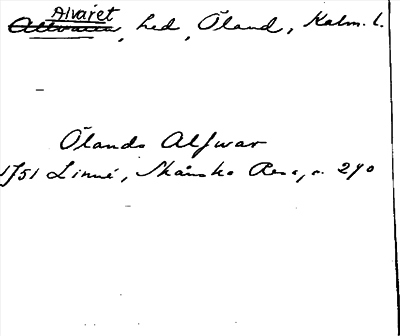 Alvaret
, hed, Öland, Kalm. l.
Ölands Alfwar
1751 Linné, Skånska Resa, s. 290